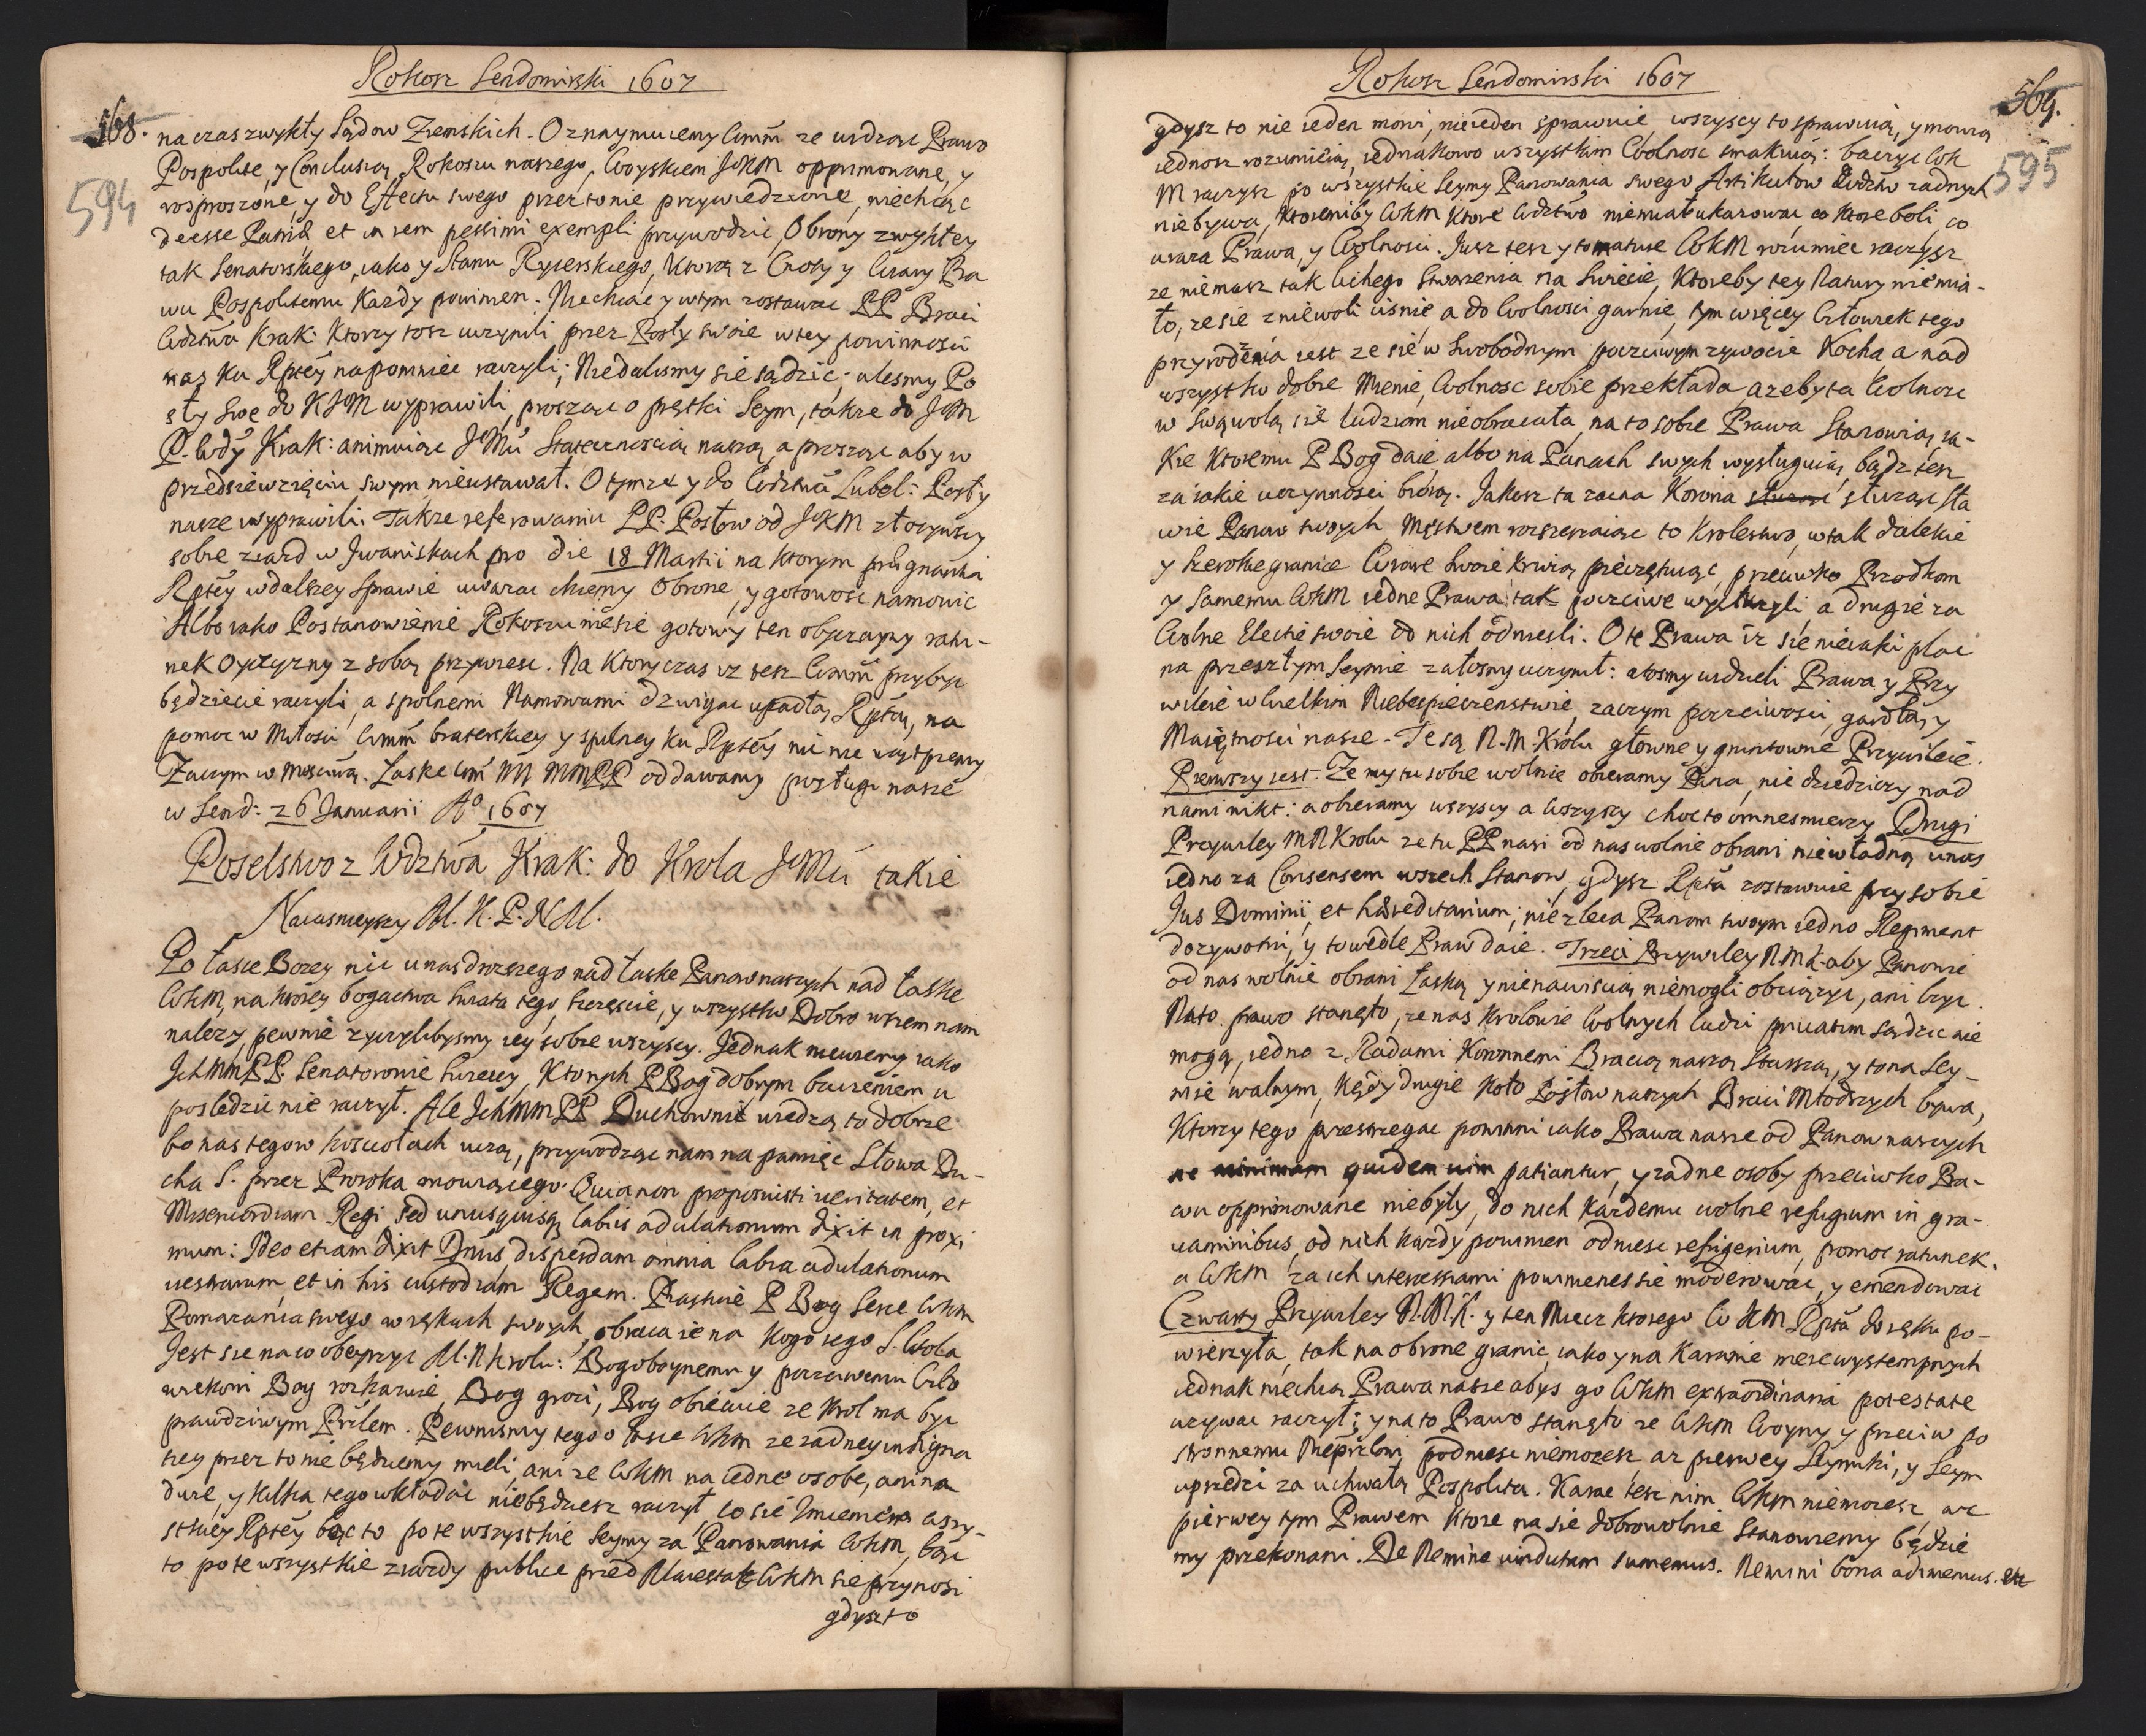 Rokosz Sendomirski 1607
568.
594
na czas zwykły Sądow Ziemskich. Oznaymuiemy Wmm ze widząc Prawo
Pospolite, y Conclusią Rokoszu naszego, Woyskiem JKM opprimowane, y
rosproszone, y do Effectu swego przez to nie przywiedzione, niechcąc
deesse Patriæ et in rem pessimi exempli przywodzic, Obrony zwykłey
tak Senatorskiego, iako y Stanu Rycerskiego, Ktorą z Cnoty y Wiary Pra
wu Pospolitemu Kazdy powinien. Niechcąc y w tym zostawac PP Braci
Wdztwa Krak: Ktorzy tosz uczynili przez Posły swoie w tey powinnosci
nas ku Rptey napomniec raczyli; Niedalismy sie sądzic; alesmy Po
sły swe do KJM wyprawili, prosząc o prętki Seym, takze do JM
P. Wdy Krak: animuiąc JeMu Statecznoscią naszą, a prosząc aby w
przedsiewzięciu swym nieustawał. O tymze y do Wdztwa Lubel: Posły
nasze wyprawili. Takze referowaniu PP. Posłow od JKM złozywszy
sobie ziazd w Jwaniskach pro die 18 Martii na ktorym pilignanki
Rptey w dalszey Sprawie uwazac chcemy Obronę, y gotowosc namowic
Albo iako Postanowienie Rokoszu niesie gotowy ten obyczayny ratu-
nek Oyczyzny z sobą przyniesc. Na Ktory czas iz tesz Wmm przybyc
będziecie raczyli, a spolnemi Namowami dzwigac upadłą Rptą, na
pomoc w Miłosci Wmm braterskiey y spulney ku Rptey nic nie wątpiemy
Zaczym w Mosciwą Łaske Wm NN MMPP oddawamy posługi nasze
w Send: 26 Januarii Ao 1607
Poselstwo z Wdztwa Krak: do Krola JeMu takie
Naiasnieyszy M. K. P. N M.
Po łasce Bozey nic u nas drozszego nad łaske Panow naszych nad łaske
WKM, na ktorey bogactwa swiata tego, szczęscie, y wszystko Dobro wszem nam
nalezy, pewnie zyczylibysmy iey sobie wszyscy. Jednak niewiemy iako
JchMMPP. Senatorowie Swieccy, Ktorych P Bog dobrym baczeniem u
posledzic nie raczył. Ale JchMMPP Duchowni wiedzą to dobrze
bo nas tego w kosciołach uczą, przywodząc nam na pamięc Słowa Du-
cha S. przez Proroka mowiącego: Quia non proposuisti veritatem, et
Misericordiam Regi sed unusquisq labiis adulationum dixit in proxi
mum: Ideo etiam dixit Dnus disperdam omnia labia adulationum
vestrarum, et in his custodiam Regem. Piastuie P Bog serce WKM
Pomazanca swego w rękach swoych, obraca ie na Kogo iego S. Wola
Jest sie na co obeyrzyc M. N Krolu: Bogoboynemu y poczciwemu Czło
wiekowi Bog rozkazuie, Bog grozi, Bog obiecuie ze Krol ma byc
prawdziwym Przlem. Pewnismy tego o łasce WKM ze zadney indigna
tiey przez to nie będziemy mieli, ani ze WKM na iedne osobe, ani na
dwie, y kilka tego wkładac niebędziesz raczył, co sie Imieniem wszy-
stkiey Rptey bąc to po te wszystkie Seymy za Panowania WKM, bąc
to po te wszystkie ziazdy publice przed Maiestat WKM sie przynosi
gdysz to
Rokosz Sendomirski 1607
569.
595
gdysz to nie ieden mowi, nieieden sprawuie, wszyscy to sprawuią, y mowią
iednosz rozumieią, iednakowo wszystkim Wolnosc smakuią: baczyc WK
M raczysz po wszystkie Seymy Panowania swego Artikułow Wdztw zadnych
niebywa, ktoremiby WKM ktore Wdztwo niemiało ukazowac co ktore boli, co
uraza Prawa, y Wolnosci. Jusz tesz y to natusz WKM rozumiec raczysz
ze niemasz tak lichego Stworzenia na Swiecie, Ktoreby tey Natury niemia-
ło, ze sie z niewoli cisnie, a do Wolnosci garnie, tym więcey Człowiek tego
przyrodzenia iest ze sie w Swobodnym poczciwym zywocie Kocha a nad
wszystko dobre Mienie, Wolnosc sobie przekłada a zeby ta Wolnosc
w Swąwolą sie ludziom nieobracała, na to sobie Prawa Stanowią, ia-
kie ktoremu P Bog daie, albo na Panach swych wysługuią, bądz tesz
za iakie uczynnosci biorą. Jakosz ta zacna Korona słuząc Sła
wie Panow swoych Męstwem rozszerzaiąc to Krolestwo, w tak dalekie
y szerokie granice Wiare swoie krwią pieczętuąc, przeciwko Przodkom
y samemu WKM iedne Prawa tak poczciwe wysłuzyli a drugie za
Wolne Electie swoie od nich odniesli. O te Prawa iz sie nieiaki plac
na przeszłym Seymie załosny uczynił: a tosmy widzieli Prawa y Przy
wileie w Wielkim Niebezpieczenstwie, zaczym poczciwosci, gardła, y
Maiętnosci nasze. Te są N. M. Krolu głowne y gruntowne Przywileie.
Pierwszy iest. Ze my tu sobie wolnie obieramy Pana, nie dziedziczy nad
nami nikt: a obieramy wszyscy a wszyscy choc to omnes mierzy. Drugi
Przywiley M N Krolu ze tu PP nasi od nas wolnie obrani niewładną u nas
iedno za Consensem wszech Stanow, gdysz Rpta zostawuie przy sobie
Jus Dominii, et hæreditarium; nie zleca Panom swoym iedno Regiment
dozywotni, y to wedle Praw daie. Trzeci Przywiley N M K. aby Panowie
od nas wolnie obrani Łaską, y nienawiscią niemogli obciązyc, ani bzyc.
Na to prawo stanęło, ze nas Krolowie Wolnych ludzi privatim sądzic nie
mogą, iedno z Radami Koronnemi Bracią naszą Starszą, y to na Sey-
mie walnym, Kędy drugie Koło Posłow naszych Braci Młodszych bywa,
Ktorzy tego przestrzegac powinni iako Prawa nasze od Panow naszych
ne minimam quidem vim patiantur, y zadne osoby przeciwko Pra-
wu opprimowane niebyły, do nich Kazdemu wolne refugium in gra-
vaminibus, od nich kazdy powinien odniesc refrigerium, pomoc ratunek.
a WKM za ich intercessiami powinienes sie moderowac, y emendowac
Czwarty Przywiley N. M. K. y ten Miecz ktorego W KM Rpta do ręku po-
wierzyła, tak na obrone granic, iako y na Karanie niewystempnych
iednak niechcą Prawa nasze abys go WKM extraordinaria potestate
uzywac raczył; y na to Prawo stanęło ze WKM Woyny y przeciw po
stronnemu Nieprzlowi podniesc niemozesz az pierwey Seymiki, y Seym
uprzedzi za uchwałą Pospolita. Karac tesz nim WKM niemozesz, az
pierwey tym Prawem ktore na sie dobrowolnie Stanowiemy będzie
my przekonani. De Nemine vindictam sumemus. Nemini bona adimemus. etc